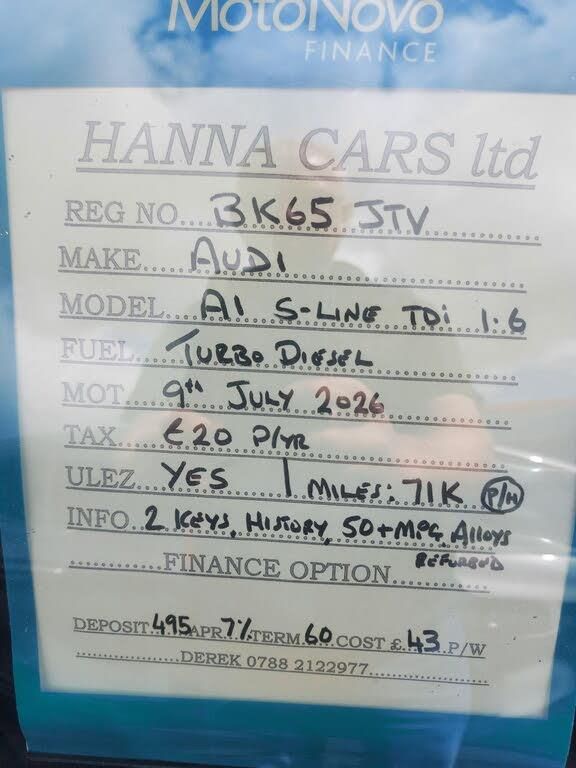 MOTONOVO
FINANCE
HANNA CARS ltd
REG NO...BK65 JTV
MAKE....AUDI
MODEL....A1 S-LINE TDi 1.6
FUEL...TURBO DIESEL
MOT...9th JULY 2026
TAX....£20 P/YR
ULEZ...YES | MILES: 71K (P/H)
INFO..2 KEYS, HISTORY, 50+MPG, Alloys
REFURBED
..........FINANCE OPTION..........
DEPOSIT.495APR.7%.TERM.60.COST £.43.P/W
..............DEREK 0788 2122977..............